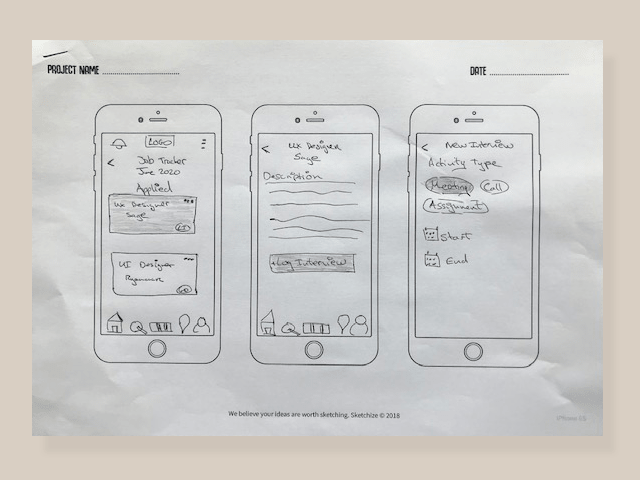 PROJECT NAME
DATE
LOGO
Job Tracker
June 2020
Applied
UX Designer
Sage
UI Designer
Ryanair
UX Designer
Sage
Description
+Log Interview
New Interview
Activity Type
Meeting
Call
Assignment
Start
End
We believe your ideas are worth sketching. Sketchize © 2018